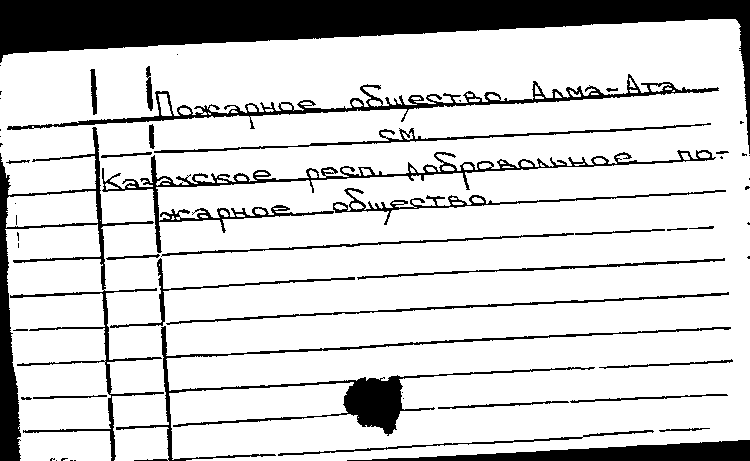 Пожарное общество. Алма-Ата.
см.
Казахское респ. добровольное по-
жарное общество.